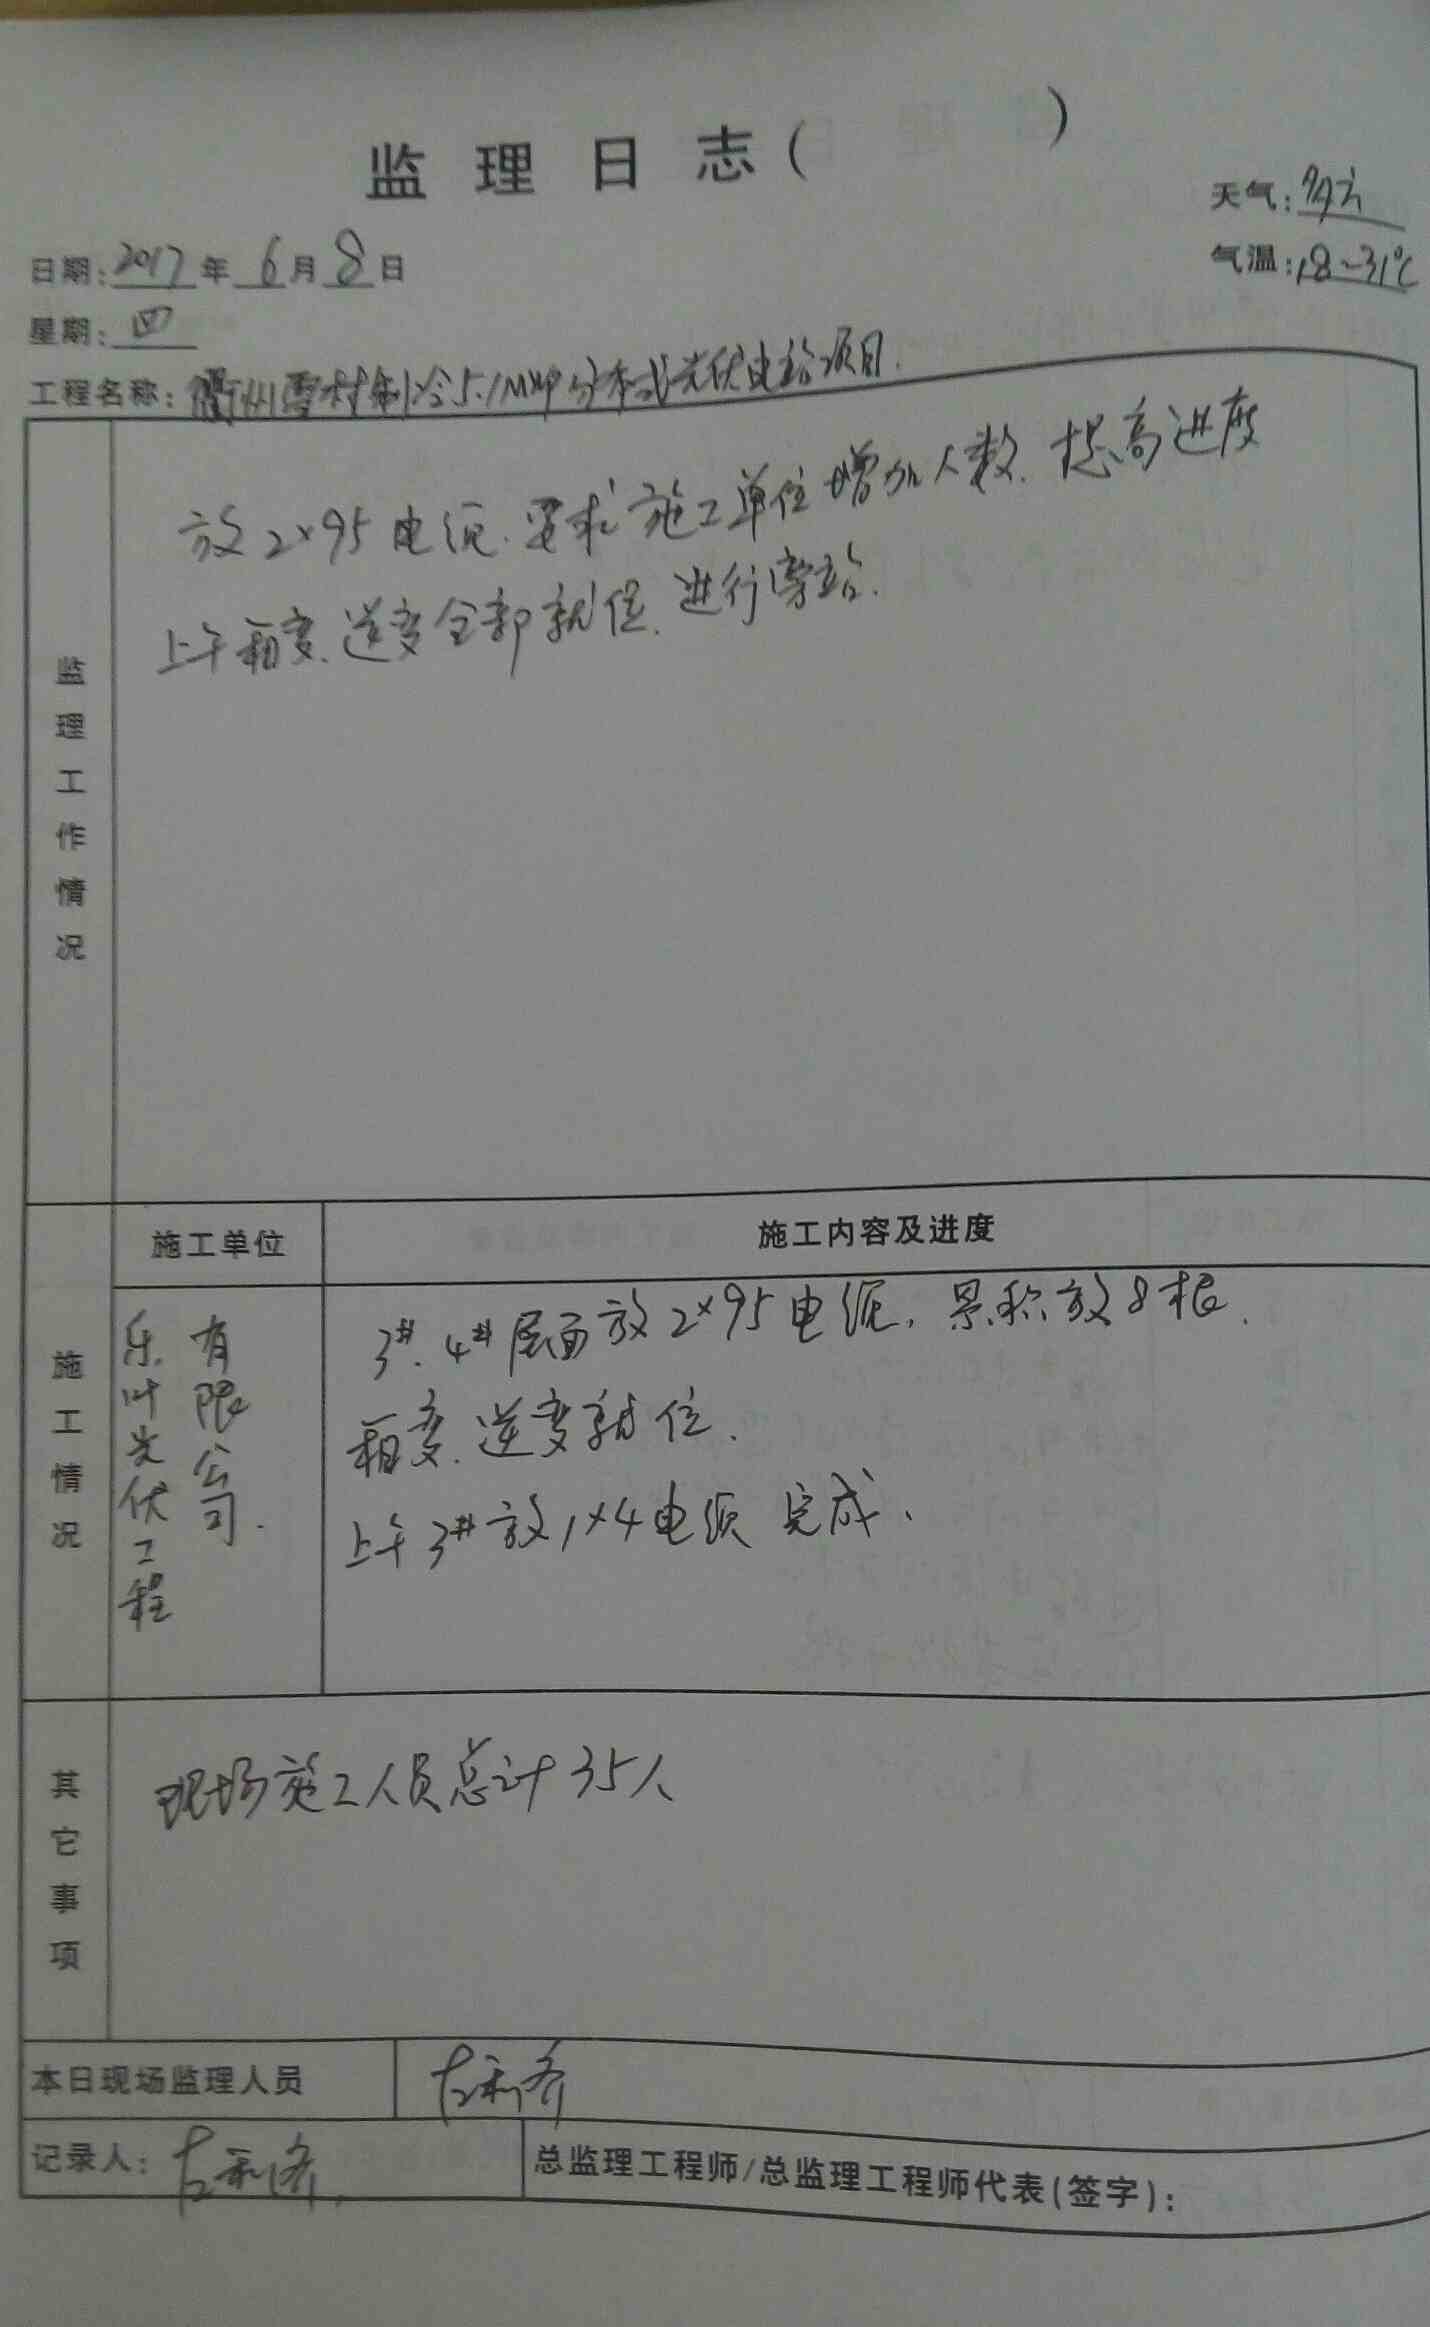 监理日志( )
天气:多云
日期:2017年6月8日
气温:18~31℃
星期:四
工程名称:衢州雪村制冷5.1MWP分布式光伏电站项目.
监理工作情况
放2×95电缆.要求施工单位增加人数.提高进度
上午箱变.逆变全部就位.进行旁站.
施工情况
施工单位
施工内容及进度
乐叶光伏工程
有限公司.
3#.4#屋面放2×95电缆.累积放8根.
箱变.逆变就位.
上午3#放1×4电缆完成.
其它事项
现场施工人员总计35人
本日现场监理人员
记录人:
总监理工程师/总监理工程师代表(签字):